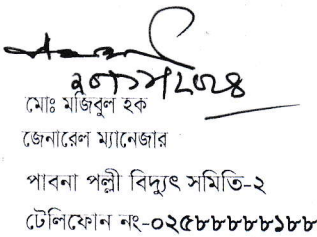 মোঃ মজিবুল হক
জেনারেল ম্যানেজার
পাবনা পল্লী বিদ্যুৎ সমিতি-২
টেলিফোন নং-০২৫৮৮৮৮৮১৮৮